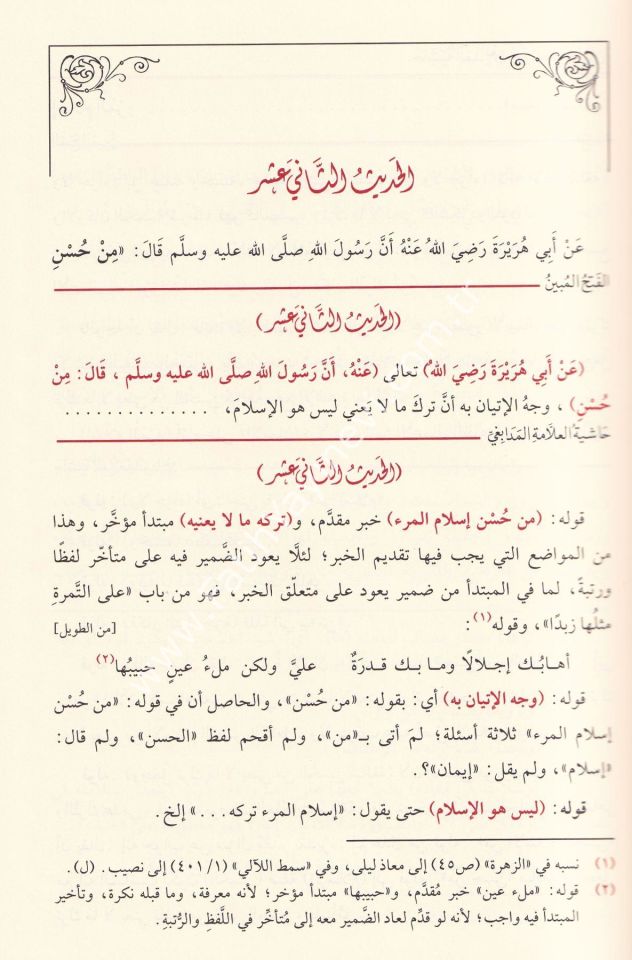 الحديث الثاني عشر
عَنْ أَبِي هُرَيْرَةَ رَضِيَ اللهُ عَنْهُ أَنَّ رَسُولَ اللهِ صلَّى الله عليه وسلَّم قَالَ: «مِنْ حُسْنِ
الفَتْحُ المُبِينُ
(الحديث الثاني عشر)
(عَنْ أَبِي هُرَيْرَةَ رَضِيَ اللهُ) تعالى (عَنْهُ، أَنَّ رَسُولَ اللهِ صلَّى الله عليه وسلَّم ، قَالَ: مِنْ
حُسْنِ) ، وجهُ الإتيان به أنَّ تركَ ما لا يَعني ليس هو الإسلامَ، . . . . . . . . . . . . .
حَاشية العلّامةِ المَدَابِغيِّ
(الحديث الثاني عشر)
قوله: (من حُسْن إسلام المرء) خبر مقدَّم، و(تركه ما لا يعنيه) مبتدأ مؤخَّر، وهذا
من المواضع التي يجب فيها تقديم الخبر؛ لئلَّا يعود الضَّمير فيه على متأخّر لفظًا
ورتبةَ، لما في المبتدأ من ضمير يعود على متعلّق الخبر، فهو من باب «على التَّمرةِ
مثلُها زبدًا»، وقوله(١): [من الطويل]
أهابُـك إجـلالًا ومـا بـك قـدرَةٌ عليَّ ولكن ملءُ عينٍ حبيبُها(٢)
قوله: (وجه الإتيان به) أي: بقوله: «من حُسْن»، والحاصل أن في قوله: «من حُسْن
إسلام المرء» ثلاثة أسئلة؛ لمَ أتى بـ«من»، ولم أقحم لفظ «الحسن»، ولم قال:
«إسلام»، ولم يقل: «إيمان»؟.
قوله: (ليس هو الإسلام) حتى يقول: «إسلام المرء تركه . . .» إلخ.
(١) نسبه في «الزهرة» (ص٤٥) إلى معاذ ليلى، وفي «سمط اللآلي» (١/ ٤٠١) إلى نصيب. (ل).
(٢) قوله: «ملء عين» خبر مُقدَّم، و«حبيبها» مبتدأ مؤخر؛ لأنه معرفة، وما قبله نكرة، وتأخير
المبتدأ فيه واجب؛ لأنه لو قدِّم لعاد الضَّمير معه إلى مُتأخِّر في اللَّفظِ والرُّتبةِ.